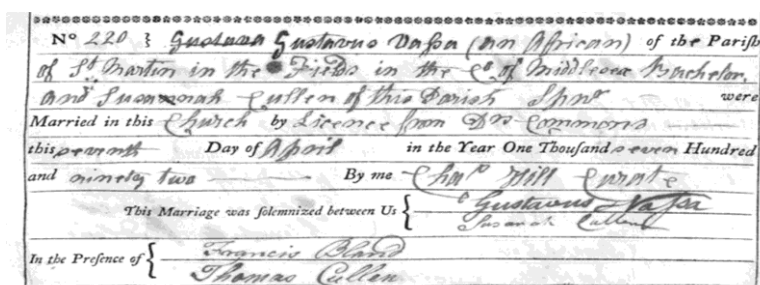 No 220 } Gustava Gustavus Vassa (an African) of the Parish
of St Martin in the Fields in the Co of Middlesex Bachelor,
and Susannah Cullen of this Parish Spnr were
Married in this Church by Licence from Drs Commons
this seventh Day of April in the Year One Thousand seven Hundred
and ninety two By me Chas Hill Curate
This Marriage was solemnized between Us { Gustavus Vassa
Susanah Cullen
In the Presence of { Francis Bland
Thomas Cullen